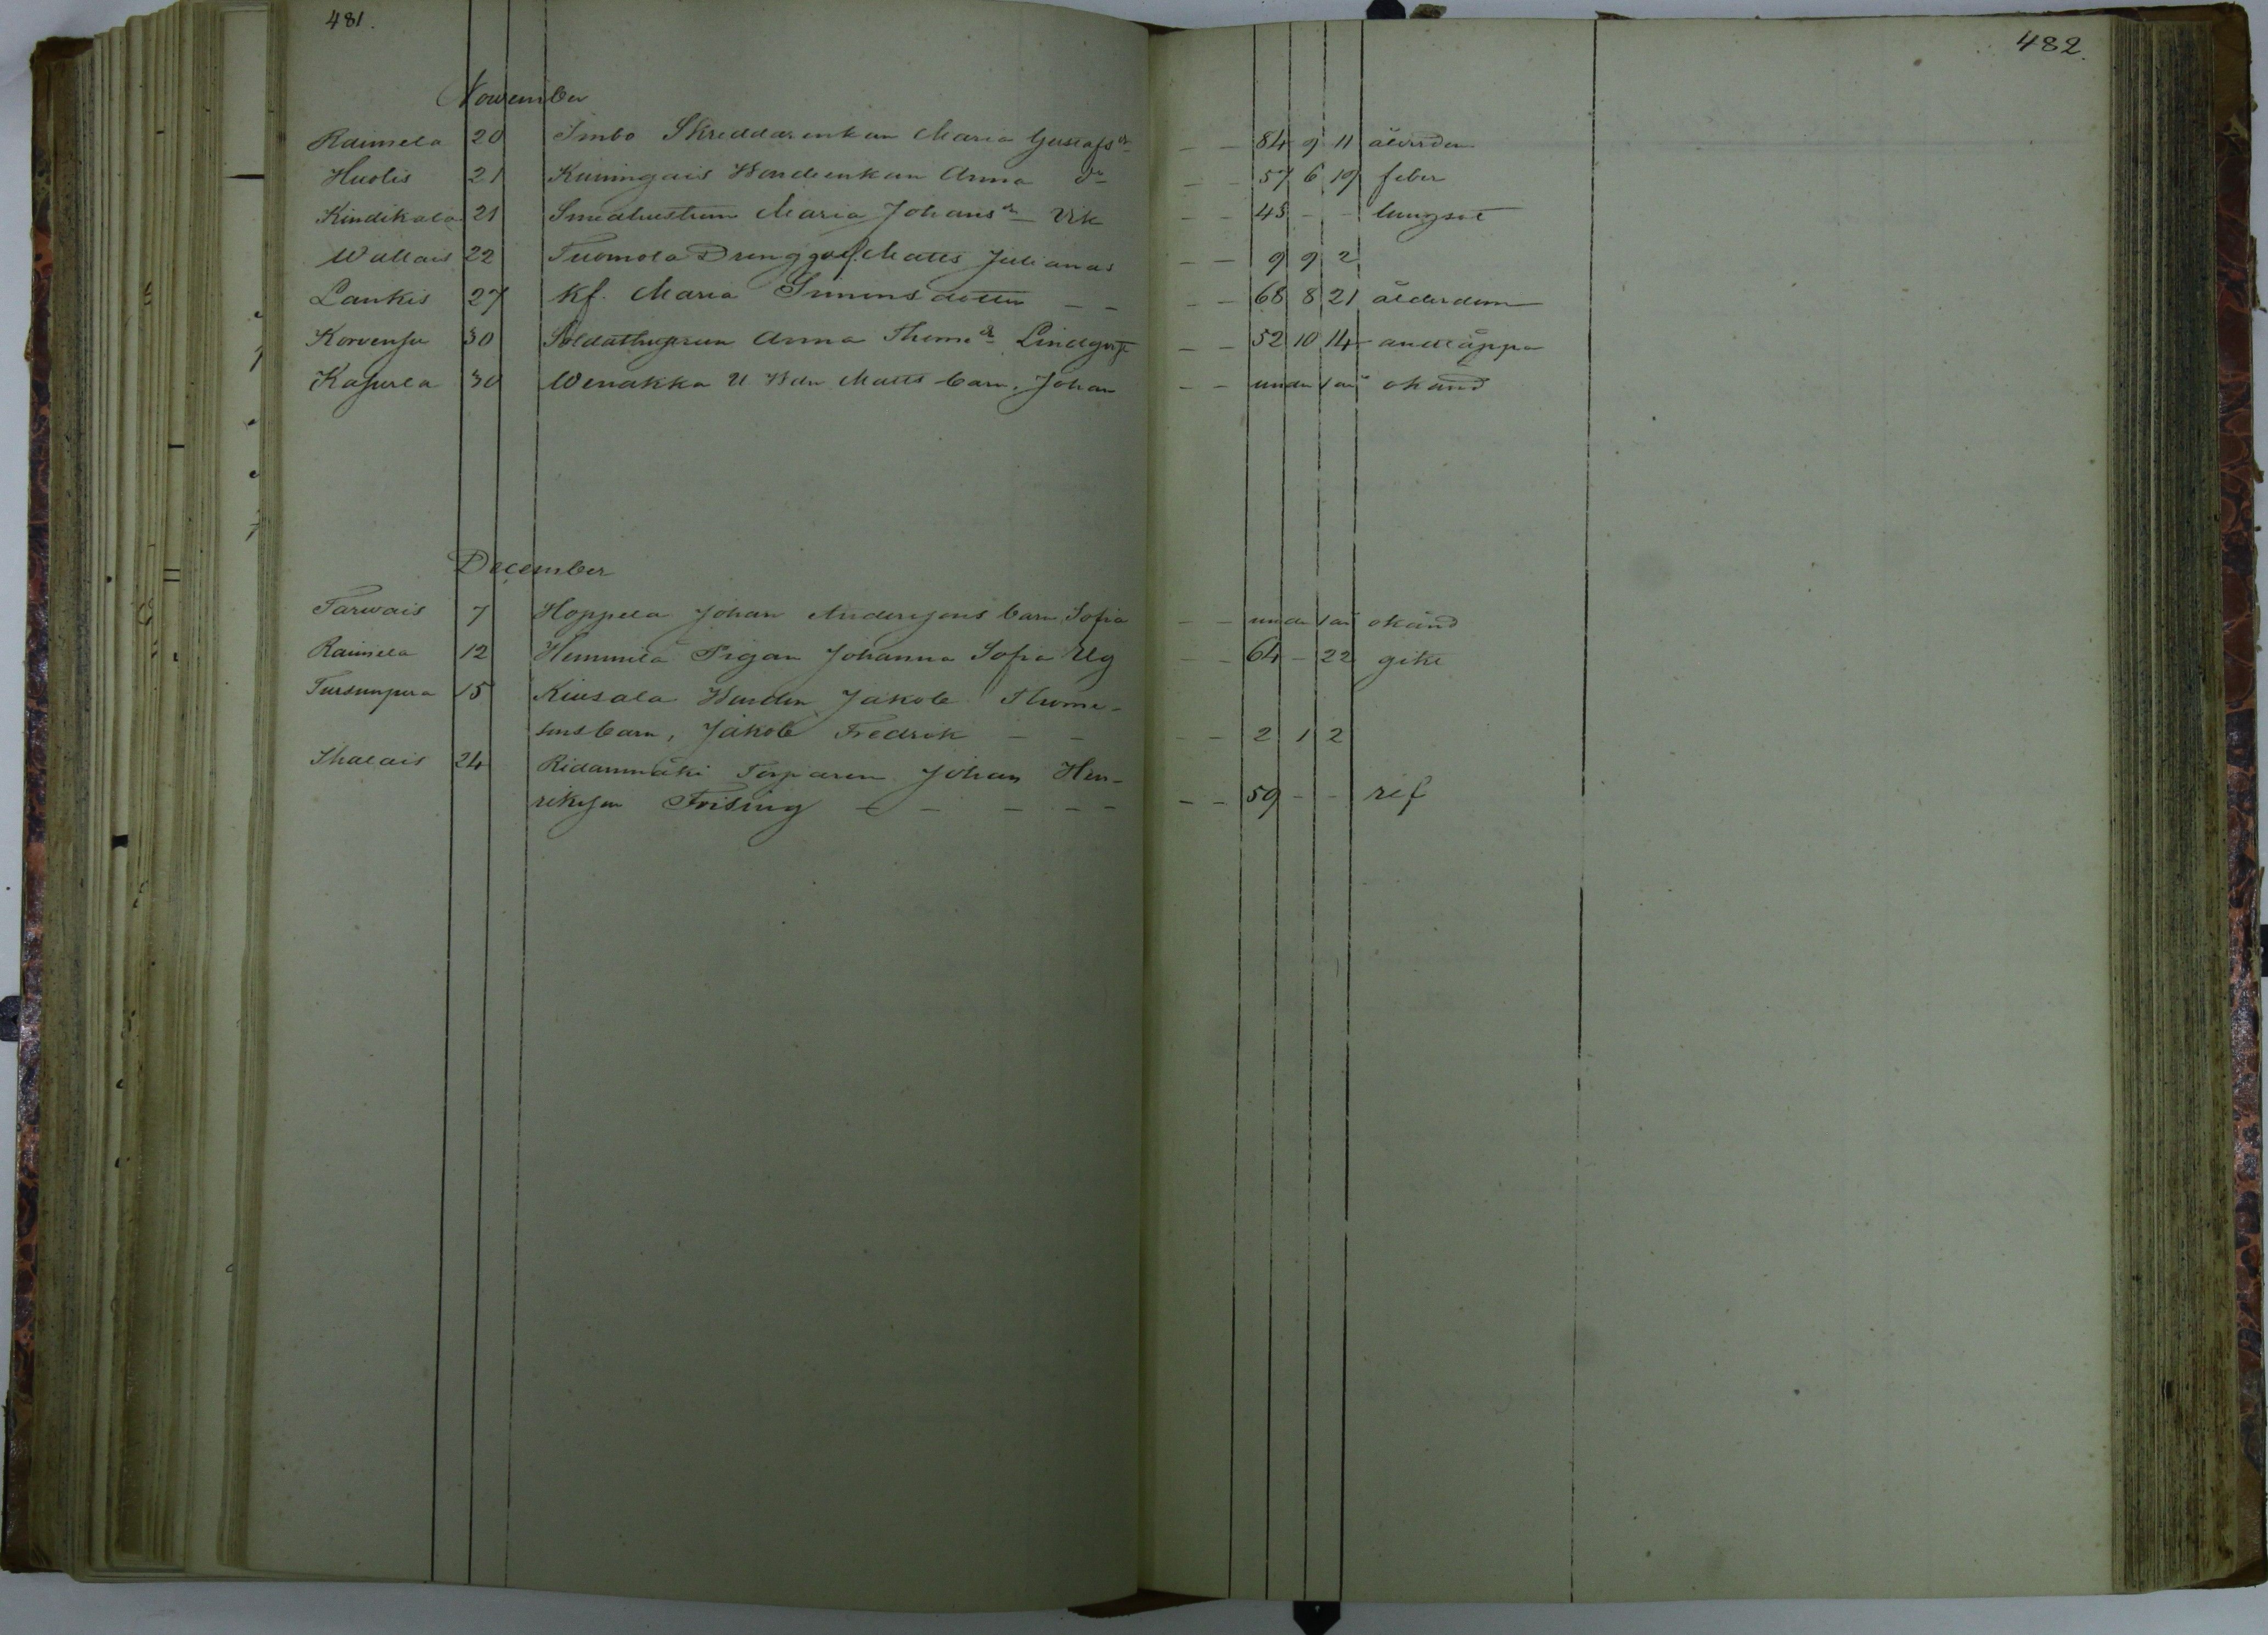 481.
482.
November
Raimela 20 Imbo Skreddarenkan Maria Gustafsdr — — 84 9 11 ålderdom
Huolis 21 Kuningais Bondeenkan Anna do — — 57 6 19 feber
Kindikala 21 Smedhustrun Maria Johansdr Vik — — 45 — — lungsot
Wallais 22 Tuomola Drenggoss. Matts Julianas — — 9 9 2
Laukis 27 Kf. Maria Simonsdotter — — — — 68 8 21 ålderdom
Korvensu 30 Soldathustrun Anna Thoms dr Lindqvist — — 52 10 14 andtäppa
Kasurla 30 Wenakka U. Bdn Matts barn, Johan — — under 1 år okänd
December
Tarwais 7 Hoppela Johan Andersons barn Sofia — — under 1 år okänd
Raimela 12 Hemmilä Pigan Johanna Sofia Ug — — 64 — 22 gikt
Tursunpera 15 Kiusala Bonden Jakob Thome-
sons barn, Jakob Fredrik — — — — 2 1 2
Ihalais 24 Ridanmäki Torparen Johan Hen-
rikson Frising — — — — — — 59 — — ref